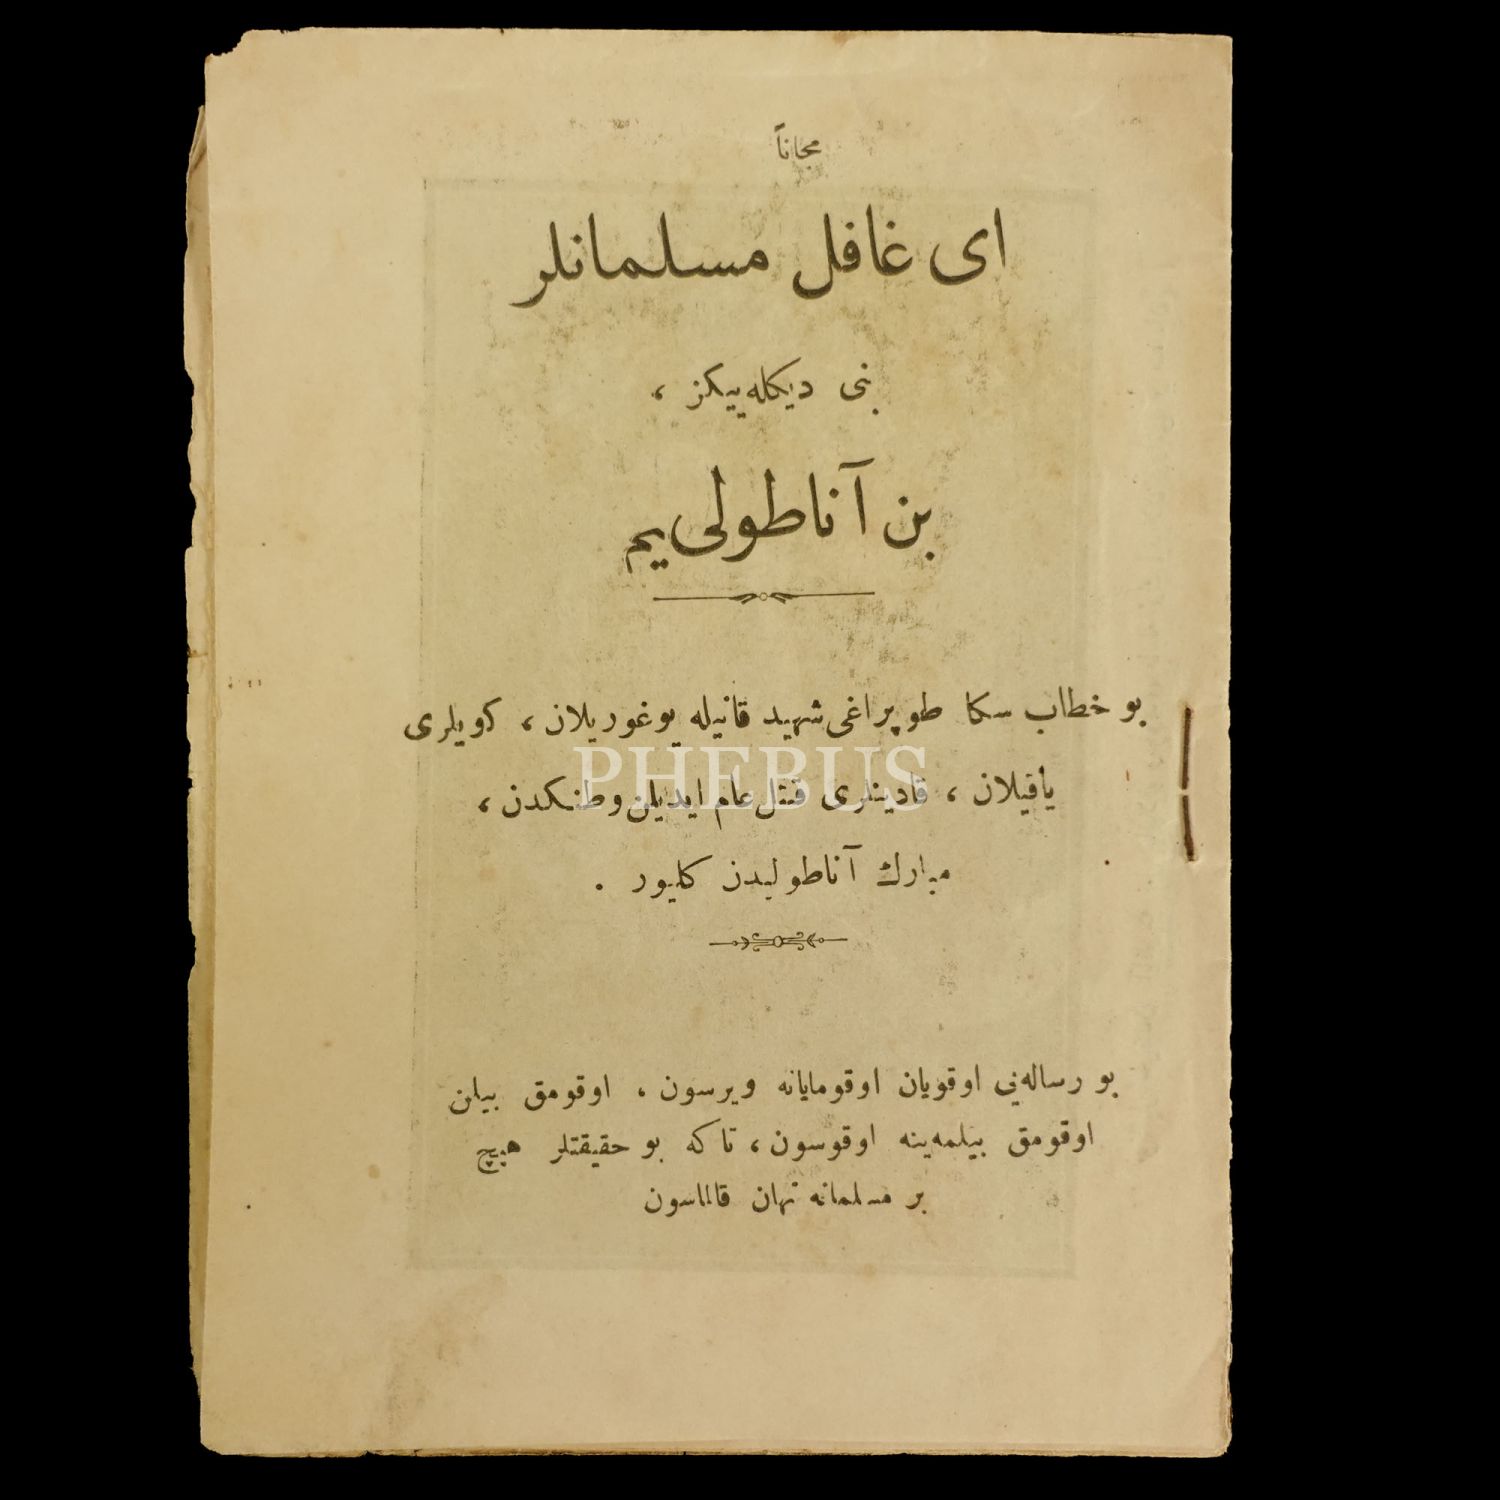 مجاناً
ای غافل مسلمانلر
بنی دیکله‌ییكز ،
بن آناطولی‌یم
بو خطاب سكا طوپراغی شهید قانیله یوغوریلان ، كویلری
یاقیلان ، قادینلری قتل عام ایدیلن وطنكدن ،
مبارك آناطولیدن كلیور .
PHEBUS
بو رساله‌یی اوقویان اوقومایانه ویرسون ، اوقومق بیلن
اوقومق بیلمه‌ینه اوقوسون ، تا كه بو حقیقتلر هیچ
بر مسلمانه نهان قالماسون